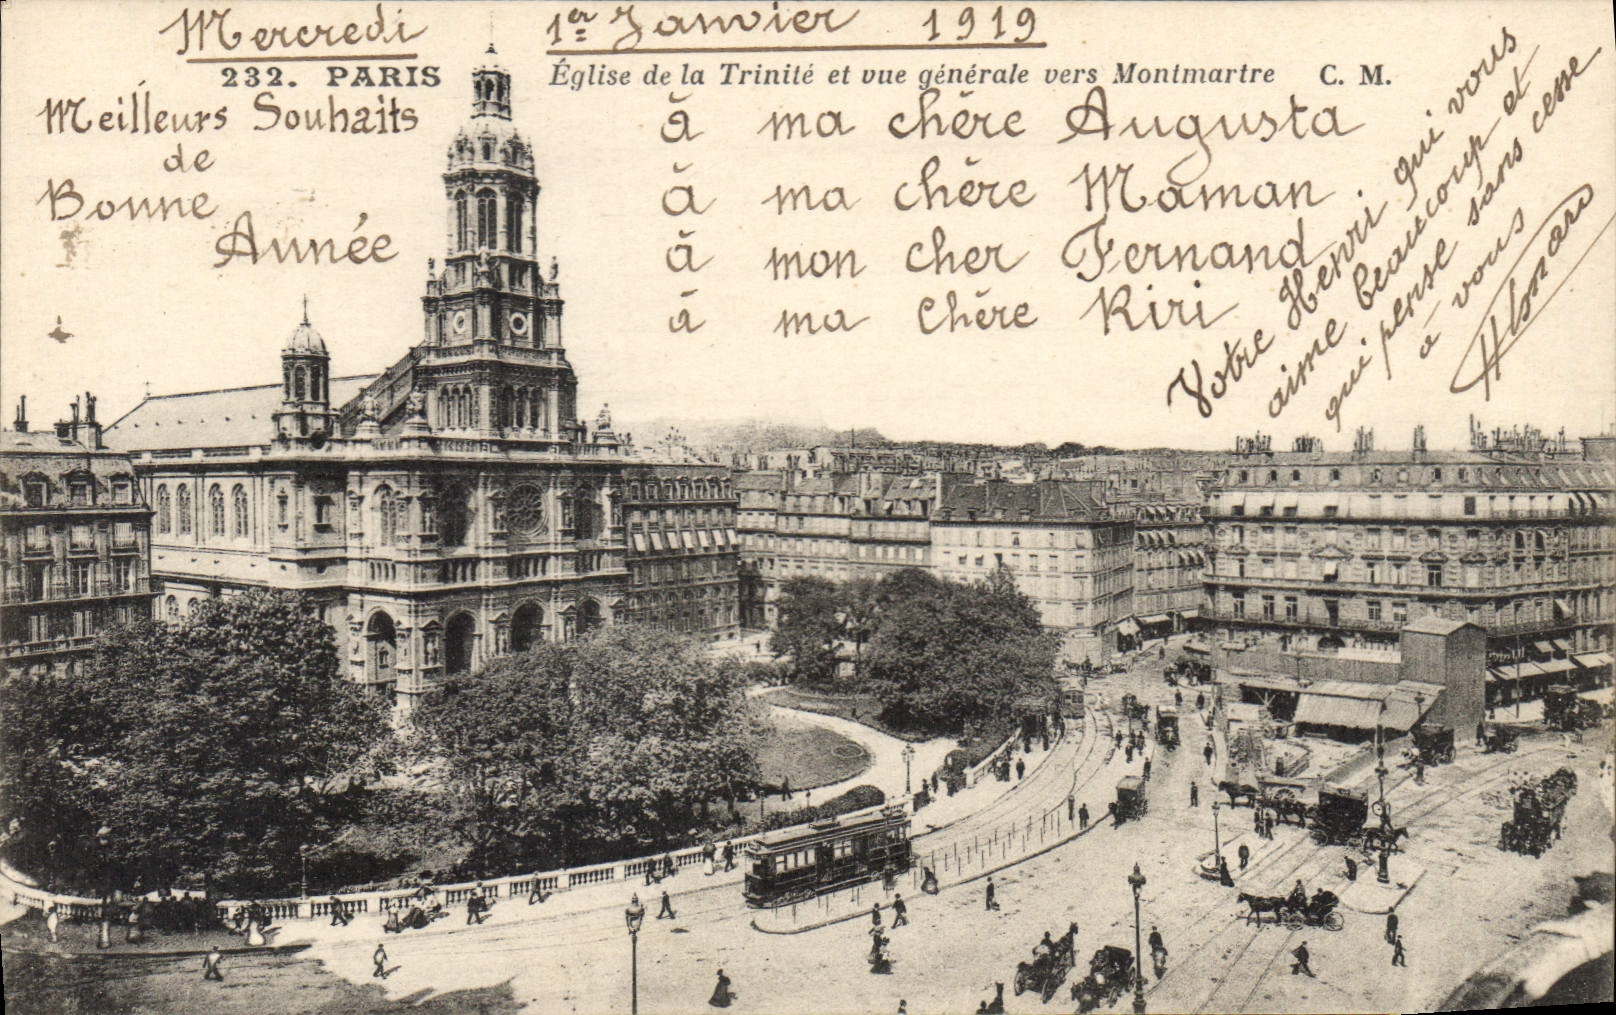 Mercredi 1er Janvier 1919
232. PARIS Église de la Trinité et vue générale vers Montmartre C. M.
Meilleurs Souhaits
de
Bonne
Année
à ma chère Augusta
à ma chère Maman
à mon cher Fernand
à ma Chère Kiri
Votre Henri qui vous
aime beaucoup et
qui pense sans cesse
à vous